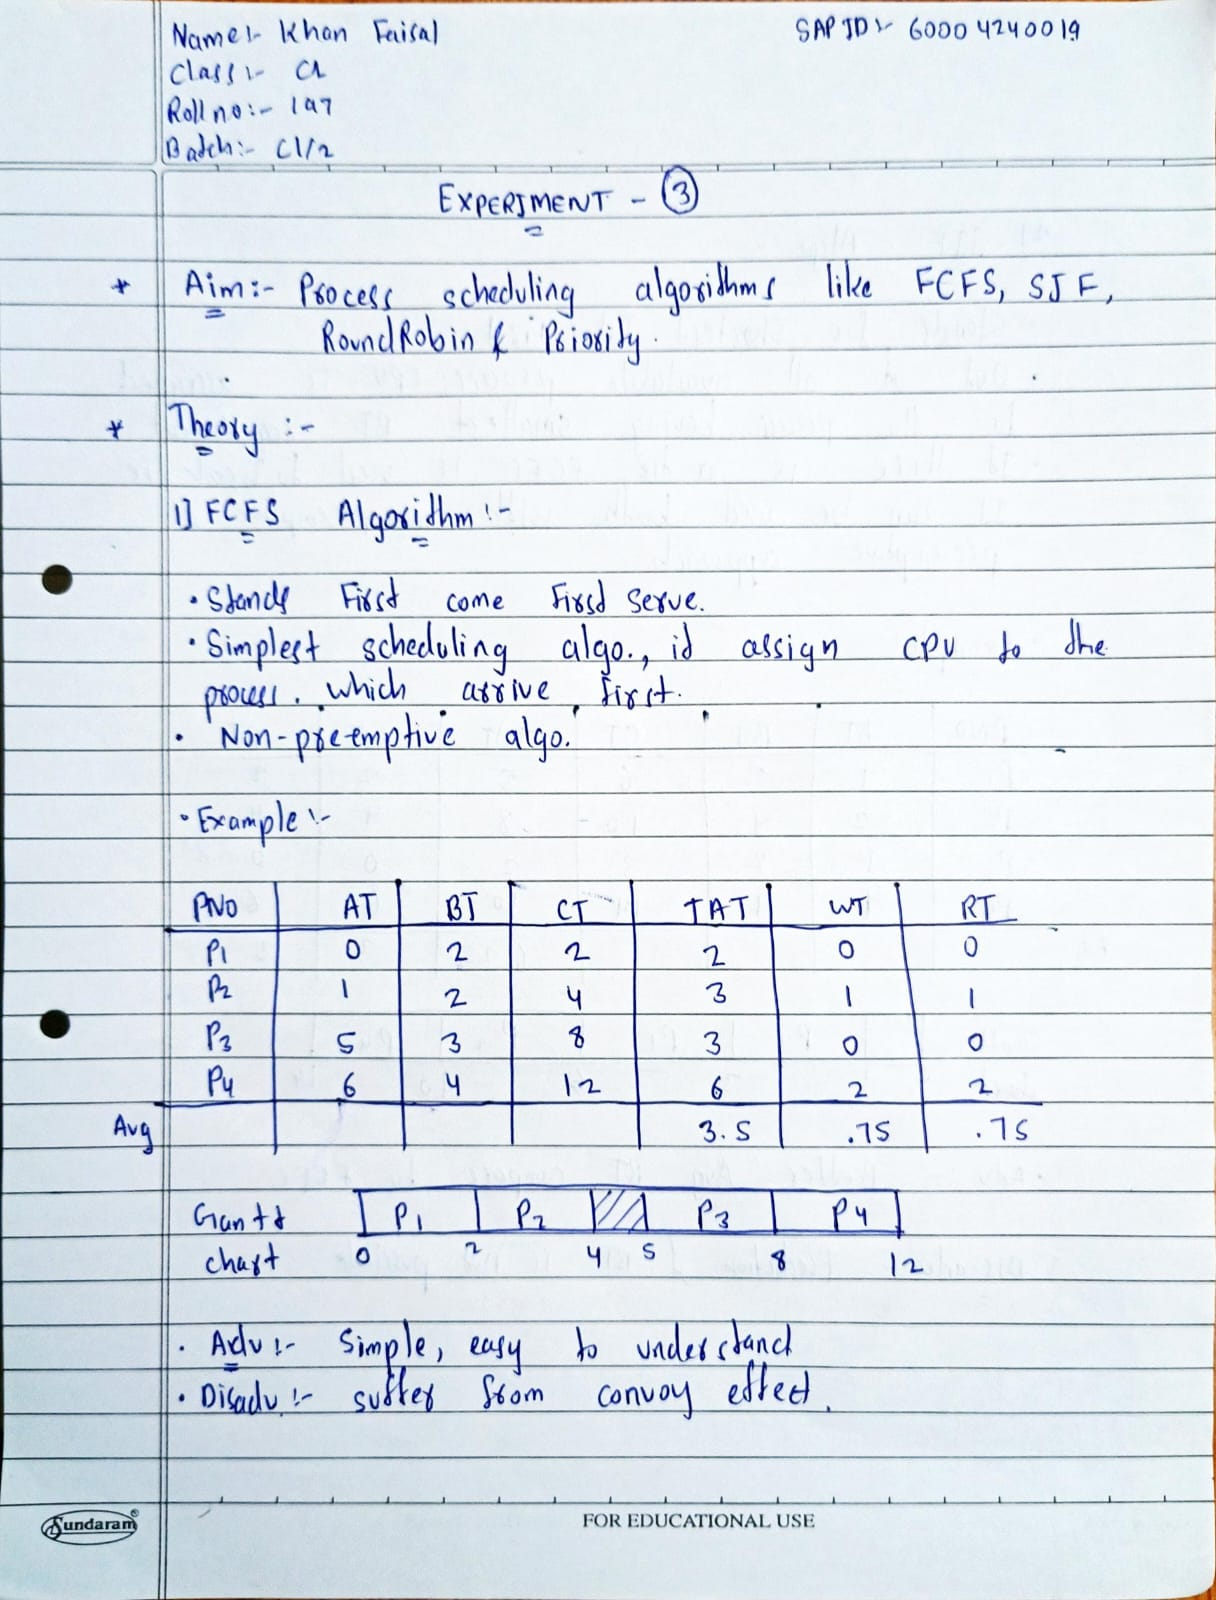 Name:- Khan Faisal
SAP ID:- 60004240019
Class:-
Roll no:- 197
Batch:- C1/2
EXPERIMENT - 3
* Aim:- Process scheduling algorithms like FCFS, SJF,
Round Robin & Priority.
* Theory :-
1] FCFS Algorithm :-
• Stands First come First serve.
• Simplest scheduling algo., it assign CPU to the
process. which arrive first.
• Non-preemptive algo.
• Example :-
PNO AT BT CT TAT WT RT
P1 0 2 2 2 0 0
P2 1 2 4 3 1 1
P3 5 3 8 3 0 0
P4 6 4 12 6 2 2
Avg 3.5 .75 .75
Gantt P1 P2 P3 P4
chart 0 2 4 5 8 12
• Adv :- Simple, easy to understand
• Disadv :- suffer from convoy effect.
Sundaram®
FOR EDUCATIONAL USE